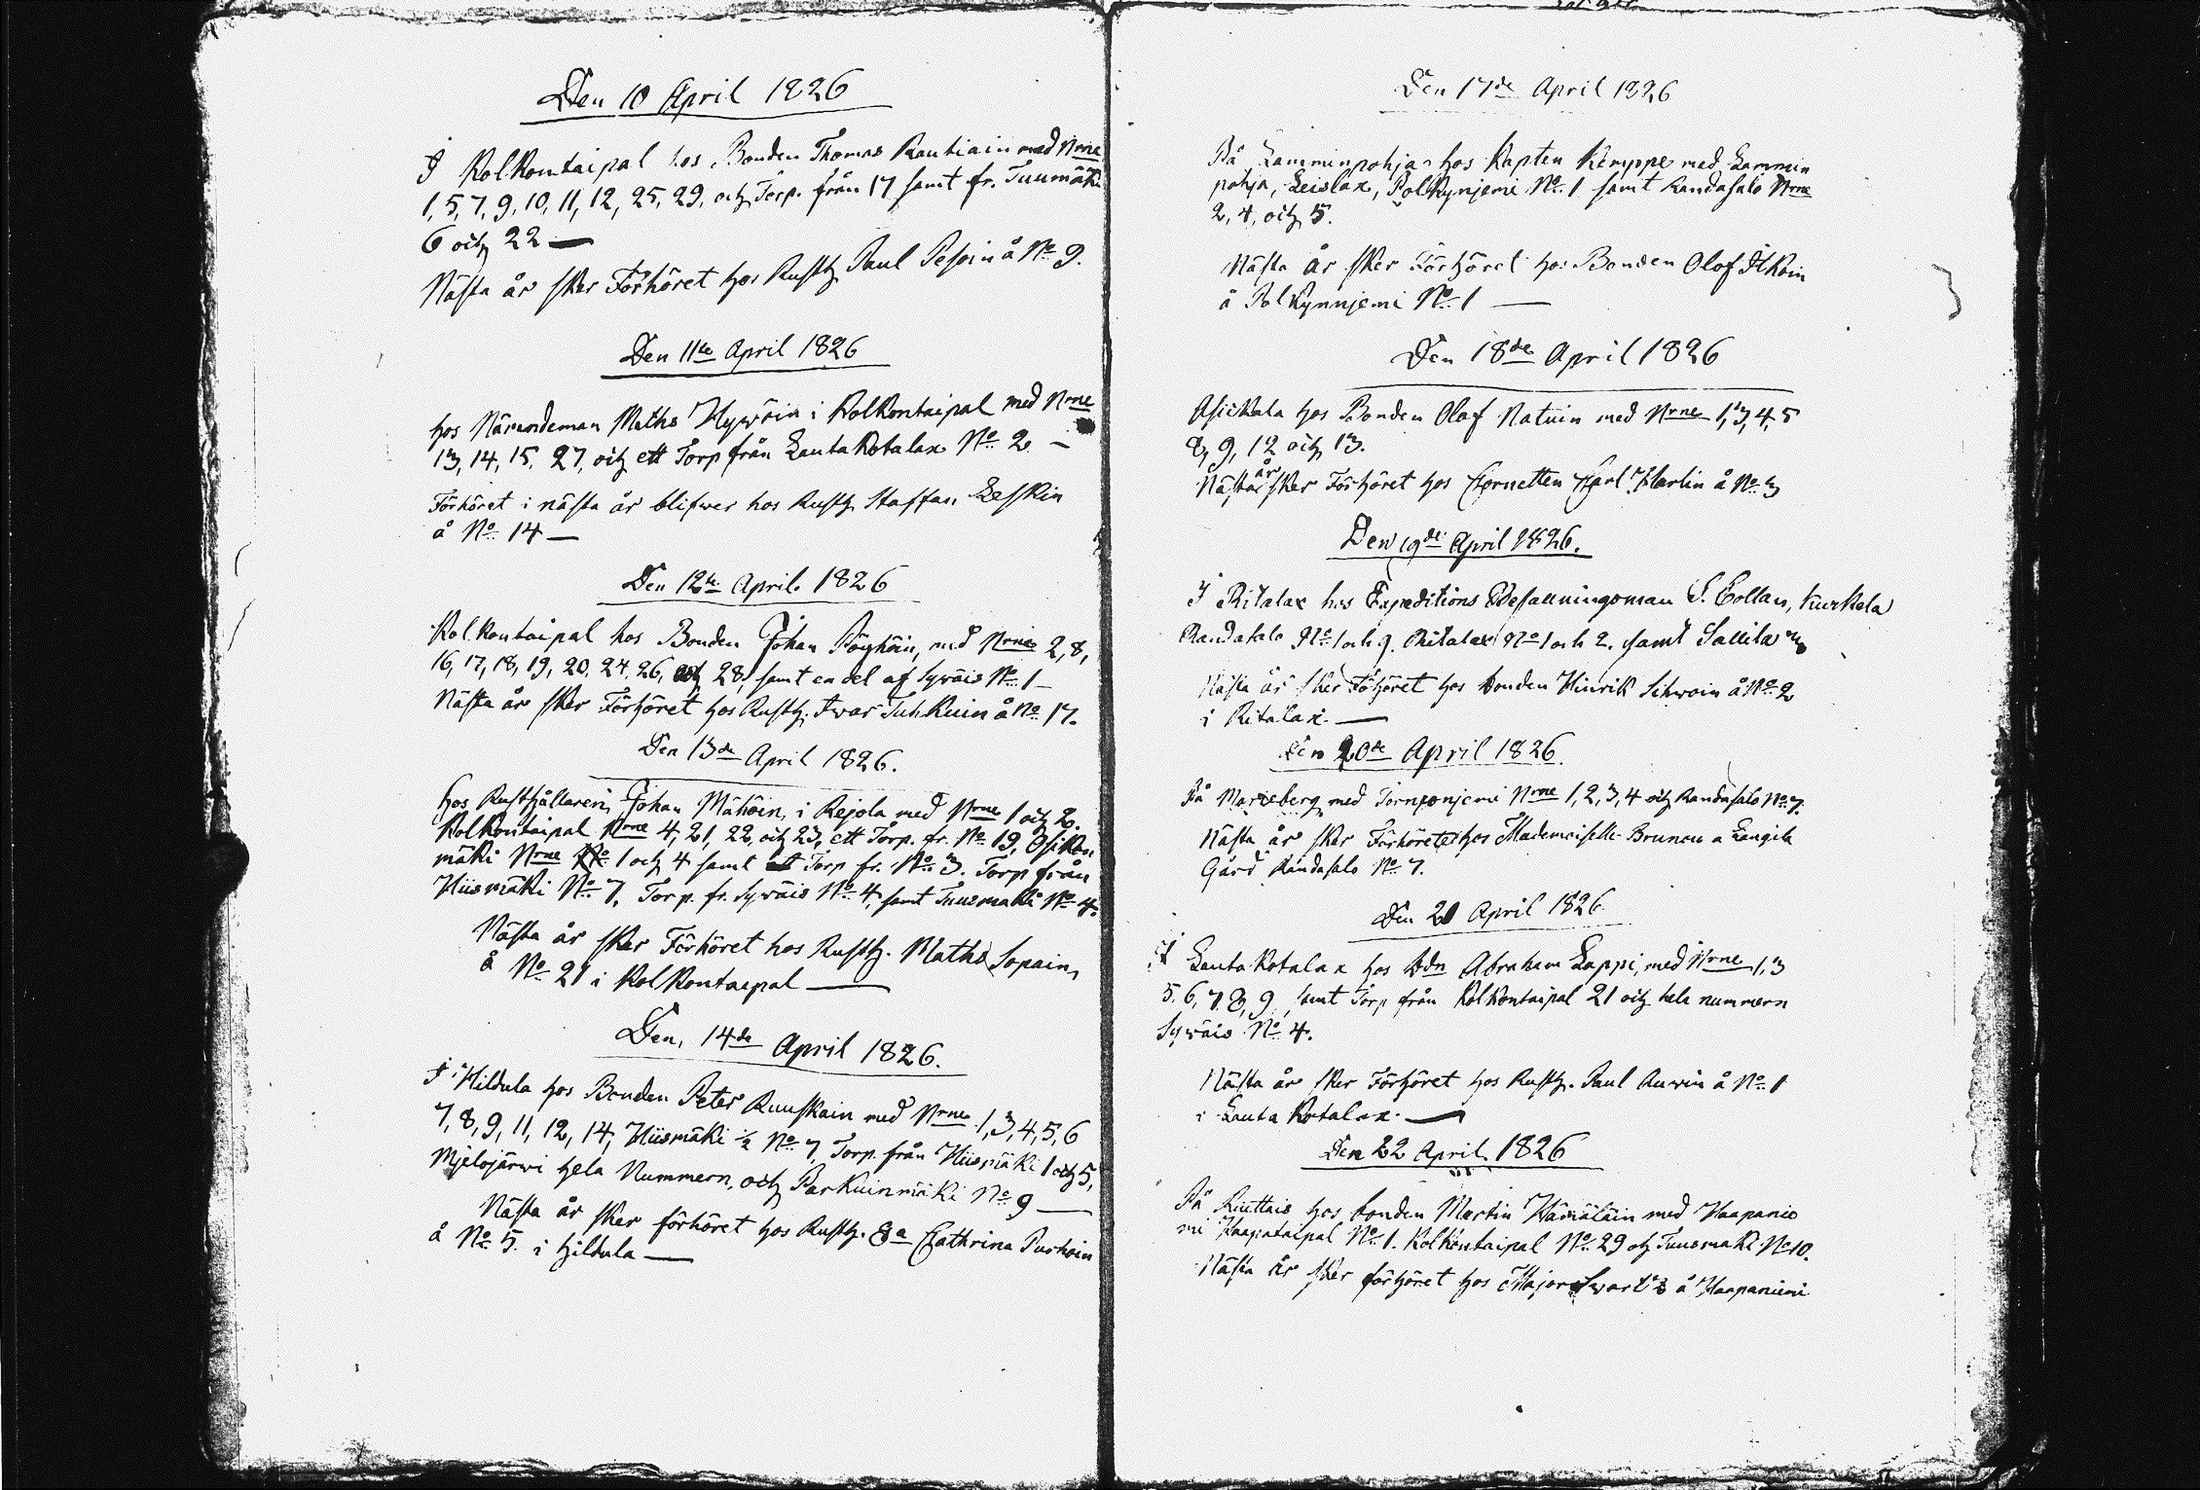 Den 10 April 1826
I Kolkontaipal hos Bonden Thomas Rautiain med Nrne
1, 5, 7, 9, 10, 11, 12, 25, 29, och Torp. från 17 samt fr. Tuumäki
6 och 22 —
Nästa år sker Förhöret hos Rusth. Paul Pesoin å No 9.
Den 11te April 1826
hos Nämndeman Maths Hywöin i Kolkontaipal med Nrne
13, 14, 15, 27, och ett Torp från Lautakotalax No 2 —
Förhöret i nästa år blifwer hos Rusth. Staffan Leskin
å No 14 —
Den 12te April 1826
Kolkontaipal hos Bonden Johan Pöyhöin, med Nrne 2, 8,
16, 17, 18, 19, 20, 24, 26, och 28, samt en del af Sywäis No 1 —
Nästa år sker Förhöret hos Rusth. Iwar Tuhkuin å No 17.
Den 13de April 1826.
hos Rusthållaren Johan Mähöin, i Rejola med Nrne 1 och 2.
Kolkontaipal Nrne 4, 21, 22, och 23, ett Torp. fr. No 19,
mäki Nrne No 1 och 4 samt ett Torp fr. No 3. Torp från
Hiismäki No 7, Torp. fr. Sywäis No 4, samt Tuusmaki No 4.
Nästa år sker Förhöret hos Rusth. Maths Sopain,
å No 21 i Kolkontaipal —
Den, 14de April 1826.
I Hildula hos Bonden Peter Ruuskain med Nrne 1, 3, 4, 5, 6
7, 8, 9, 11, 12, 14, Hiismäki ½ No 7, Torp. från Hiismäki 1 och 5,
Mjelojärwi hela Nummern, och Parkuinmäki No 9 —
Nästa år sker förhöret hos Rusth. Ea Cathrina Purhoin
å No 5. i Hildula —
Den 17de April 1826
På Lamminpohja hos Kapten Kemppe med Lammin
pohja, Leislax, Polkynjemi No 1 samt Randasalo Nrne
2, 4, och 5.
Nästa år sker Förhöret hos Bonden Olof Itkoin
å Polkynnjemi No 1 —
Den 18de April 1826
Asickala hos Bonden Olof Natuin med Nrne 1, 3, 4, 5
8, 9, 12 och 13.
Nästa år sker Förhöret hos Cornetten Carl Harlin å No 3
Den 19de April 1826.
I Ritalax hos Expeditions Befallningsman S. Collan, Kurkela
Randasalo No 1 och 9. Ritalax No 1 och 2. samt Sallila
Nästa år sker Föhöret hos bonden Hinrik Sihwoin å No 2
i Ritalax. —
Den 20de April 1826.
På Marieberg med Tornionjemi Nrne 1, 2, 3, 4 och Randasalo No 7.
Nästa år sker Förhöret hos Mademoiselle Brunou a Langila
Gård Randasalo No 7.
Den 21 April 1826.
I Lautakotalax hos bdn Abraham Lappi, med Nrne 1, 3
5, 6, 7 8, 9, samt Torp från Kolkontaipal 21 och hela nummern
Sywäis No 4.
Nästa år sker Förhöret hos Rusth. Paul Auwin å No 1
i Lautakotalax. —
Den 22 April 1826
På Riuttais hos bonden Martin Hämäläin med Haapanie
mi Haapataipal No 1. Kolkontaipal No 29 och Tuusmaki No 10.
Nästa år sker förhöret hos Major Swartz å Haapaniemi